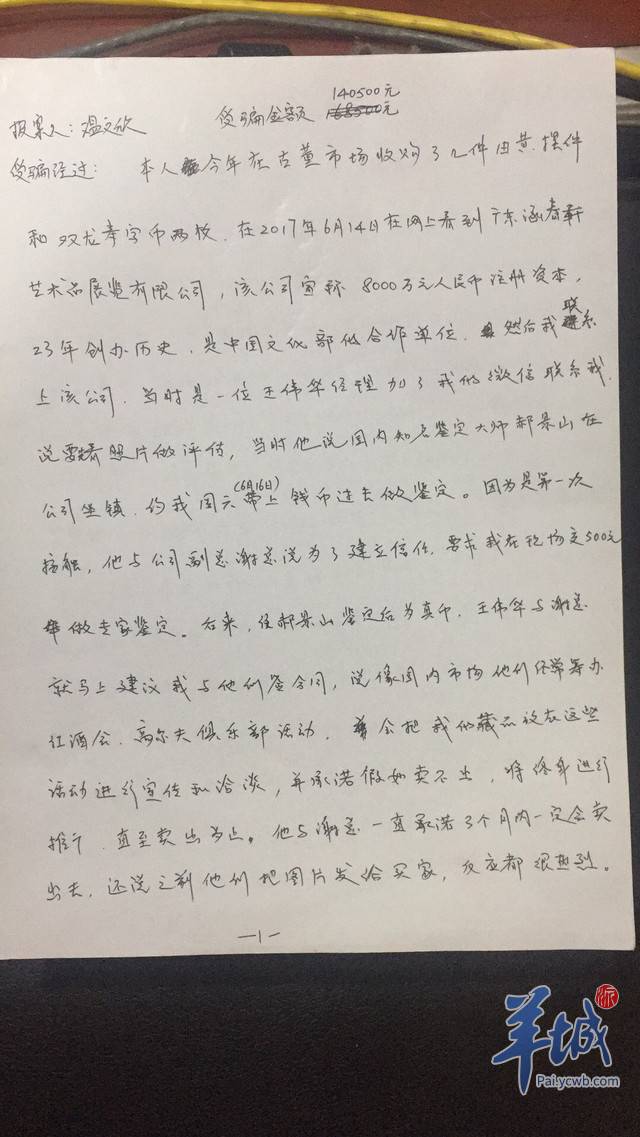 140500元
报案人：温文欣 受骗金额 168500元
受骗经过： 本人今年在古董市场收购了几件田黄摆件
和双龙寿字币两枚．在2017年6月14日在网上看到广东涵春轩
艺术品展览有限公司，该公司宣称8000万元人民币注册资本，
23年创办历史．是中国文化部的合作单位．然后我联系
上该公司．当时是一位王伟华经理加了我的微信联系我．
说要看照片做评估，当时他说国内知名鉴定大师郝景山在
公司坐镇．约我周六(6月16日)带上钱币过去做鉴定。因为是第一次
接触，他与公司副总谢总说为了建立信任．要求我在现场交500元
做专家鉴定。后来，经郝景山鉴定后为真币．王伟华与谢总
就马上建议我与他们签合同，说像国内市场他们经常举办
红酒会．高尔夫俱乐部活动．会把我的藏品放在这些
活动进行宣传和洽谈，并承诺假如卖不出，将终身进行
推广．直至卖出为止。他与谢总一直承诺3个月内一定会卖
出去．还说之前他们把图片发给买家，反应都很热烈。
—1—
羊城派
Pai.ycwb.com